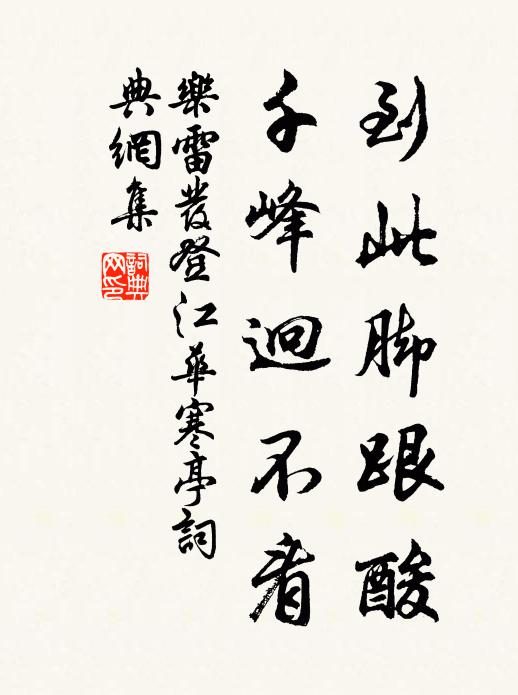 到此脚跟酸
千峰迥不看
樂雷發登江華寒亭詞
典網集
詞典
网印